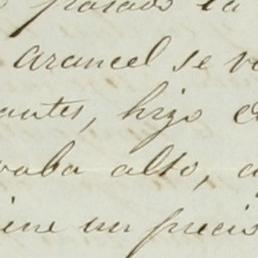 pasado la
arancel se v
antes, hizo
vaba alto, a
iene un precis